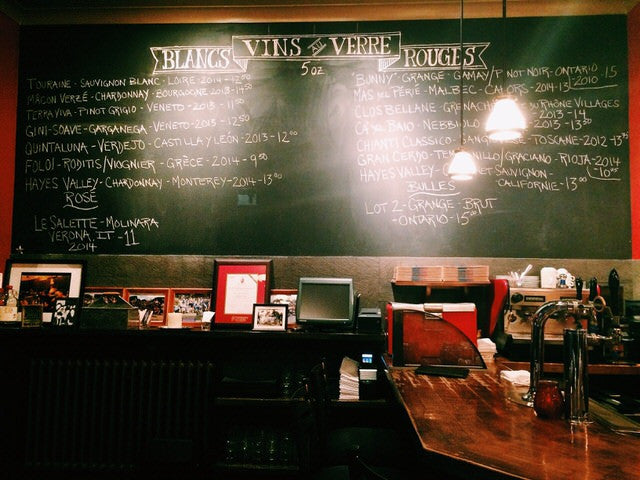 VINS AU VERRE
5 oz
BLANCS
TOURAINE - SAUVIGNON BLANC - LOIRE - 2014 - 12.50
MÂCON VERZÉ - CHARDONNAY - BOURGOGNE 2013 - 14.50
TERRA VIVA - PINOT GRIGIO - VENETO - 2013 - 11.50
GINI - SOAVE - GARGANEGA - VENETO - 2013 - 12.50
QUINTALUNA - VERDEJO - CASTILLA Y LEÓN - 2013 - 12.00
FOLOI - RODITIS/VIOGNIER - GRÈCE - 2014 - 9.50
HAYES VALLEY - CHARDONNAY - MONTEREY - 2014 - 13.00
ROSÉ
LE SALETTE - MOLINARA
VERONA, IT - 11
2014
ROUGES
"BUNNY" GRANGE - GAMAY/PINOT NOIR - ONTARIO 15
2010
MAS DEL PÉRIÉ - MALBEC - CAHORS - 2014 - 13
CLOS BELLANE - GRENACHE RHÔNE VILLAGES
2013 - 14
CA' DEL BAIO - NEBBIOLO 2013 - 13.50
CHIANTI CLASSICO - SANGIOVESE - TOSCANE - 2012 - 13
GRAN CERDO - TEMPRANILLO/GRACIANO - RIOJA - 2014
- 10
HAYES VALLEY - CABERNET SAUVIGNON -
CALIFORNIE - 13.00
BULLES
LOT 2 - GRANGE - BRUT
- ONTARIO - 15.00